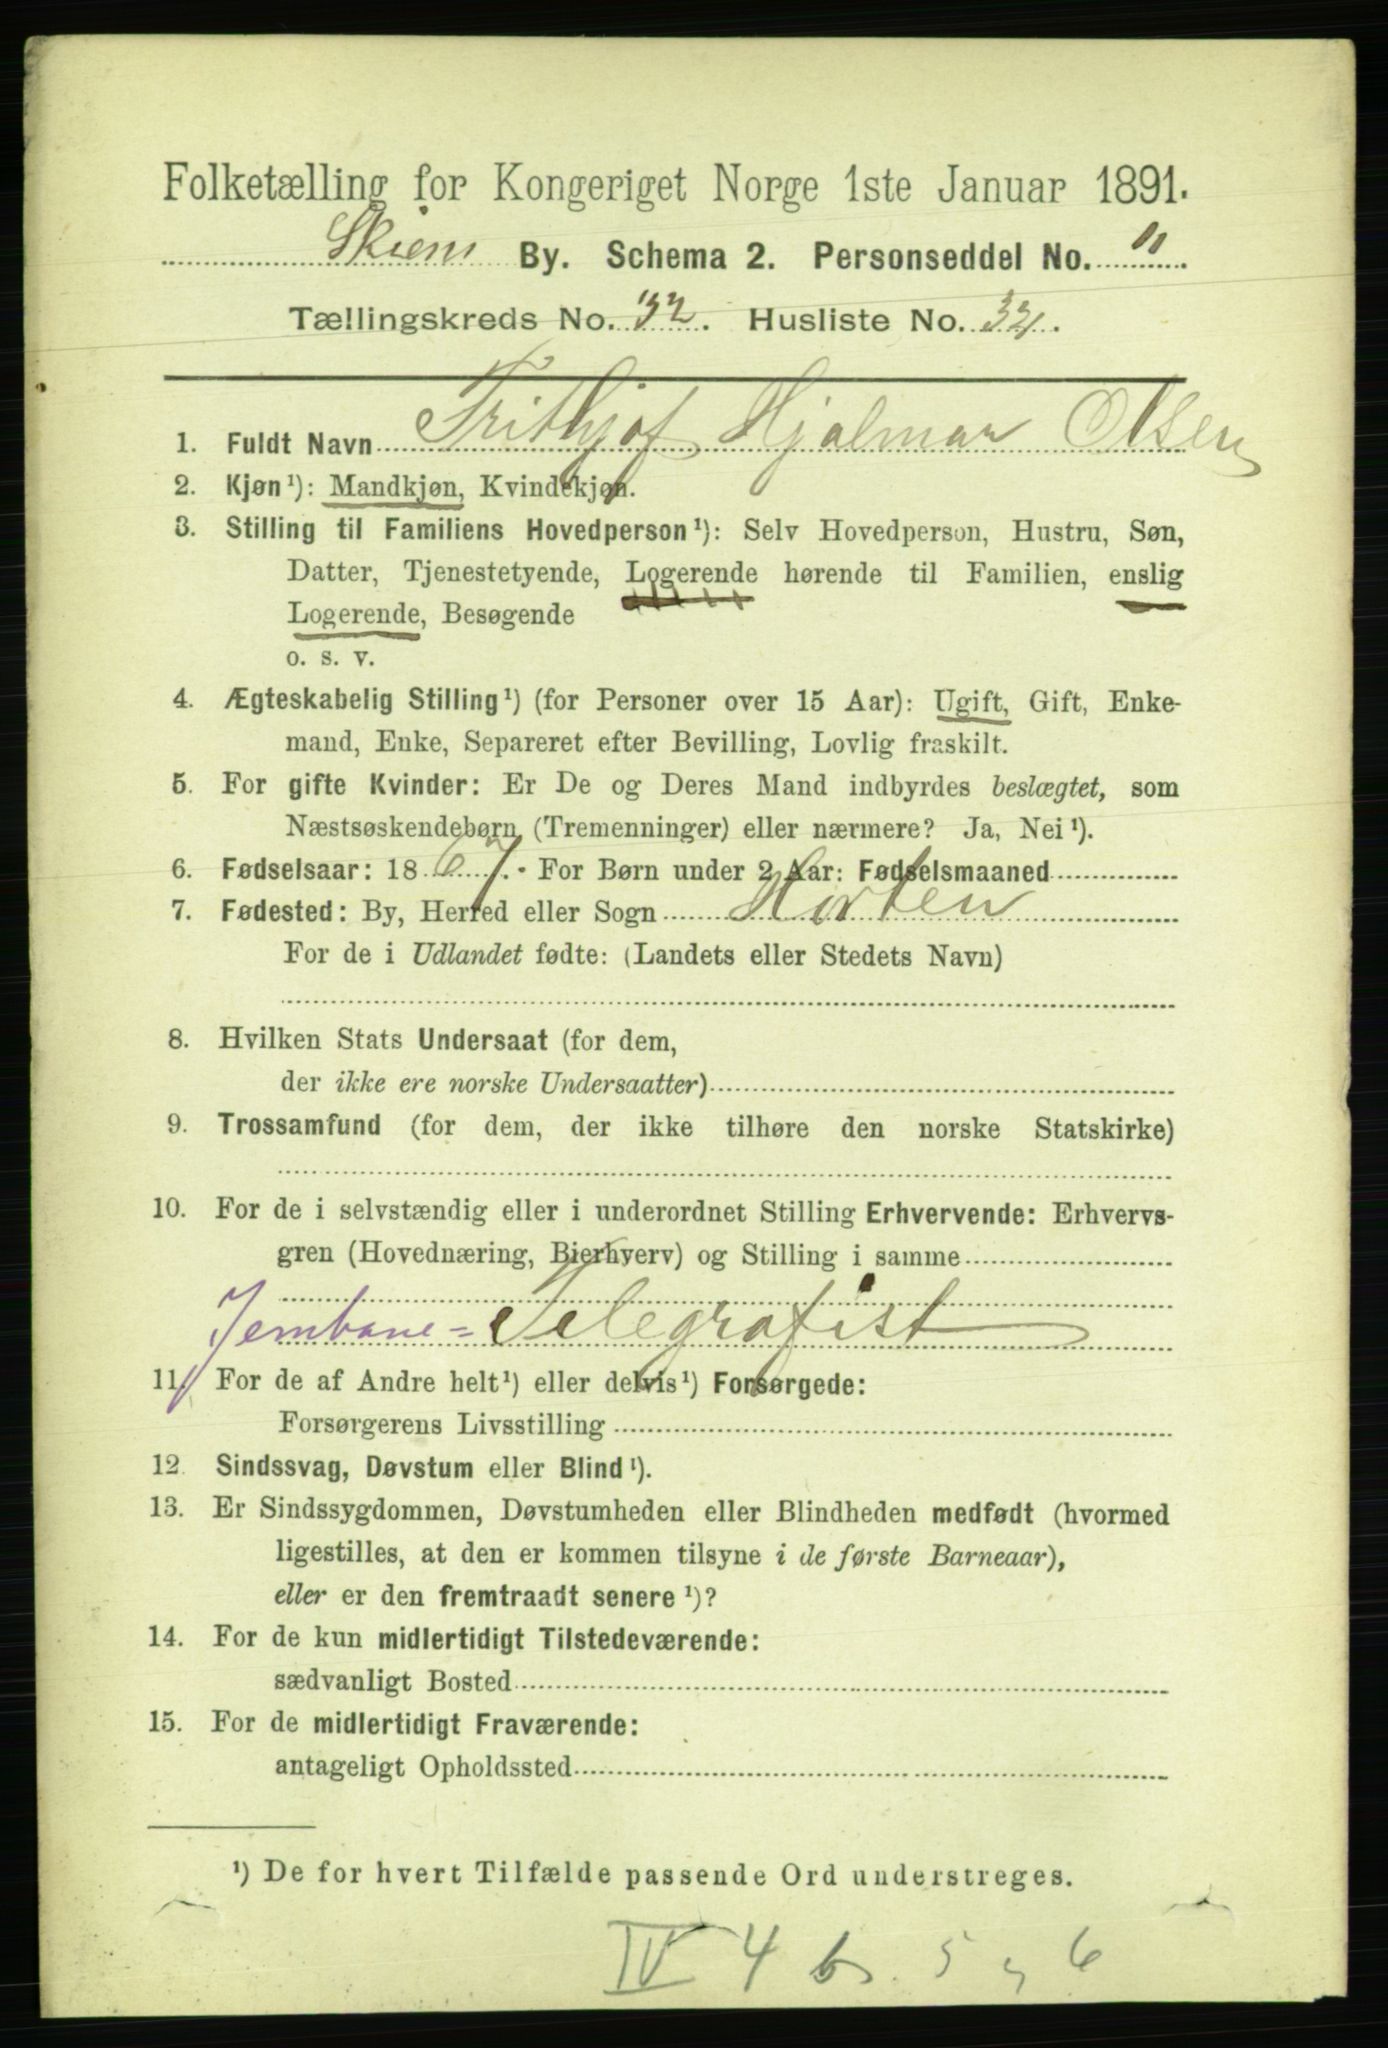 Folketælling for Kongeriget Norge 1ste Januar 1891.
Skiens By. Schema 2. Personseddel No. 11.
Tællingskreds No. 32. Husliste No. 32.
1. Fuldt Navn Frithjof Hjalmar Olsen
2. Kjøn¹): Mandkjøn, Kvindekjøn.
3. Stilling til Familiens Hovedperson¹): Selv Hovedperson, Hustru, Søn,
Datter, Tjenestetyende, Logerende hørende til Familien, enslig
Logerende, Besøgende
o. s. v.
4. Ægteskabelig Stilling¹) (for Personer over 15 Aar): Ugift, Gift, Enke-
mand, Enke, Separeret efter Bevilling, Lovlig fraskilt.
5. For gifte Kvinder: Er De og Deres Mand indbyrdes beslægtet, som
Næstsøskendebørn (Tremenninger) eller nærmere? Ja, Nei¹).
6. Fødselsaar: 1867. For Børn under 2 Aar: Fødselsmaaned
7. Fødested: By, Herred eller Sogn Horten
For de i Udlandet fødte: (Landets eller Stedets Navn)
8. Hvilken Stats Undersaat (for dem,
der ikke ere norske Undersaatter)
9. Trossamfund (for dem, der ikke tilhøre den norske Statskirke)
10. For de i selvstændig eller i underordnet Stilling Erhvervende: Erhvervs-
gren (Hovednæring, Bierhverv) og Stilling i samme
Jernbane=Telegrafist
11. For de af Andre helt¹) eller delvis¹) Forsørgede:
Forsørgerens Livsstilling
12. Sindssvag, Døvstum eller Blind¹).
13. Er Sindssygdommen, Døvstumheden eller Blindheden medfødt (hvormed
ligestilles, at den er kommen tilsyne i de første Barneaar),
eller er den fremtraadt senere¹)?
14. For de kun midlertidigt Tilstedeværende:
sædvanligt Bosted
15. For de midlertidigt Fraværende:
antageligt Opholdssted
¹) De for hvert Tilfælde passende Ord understreges.
IV 4 b. 5 6